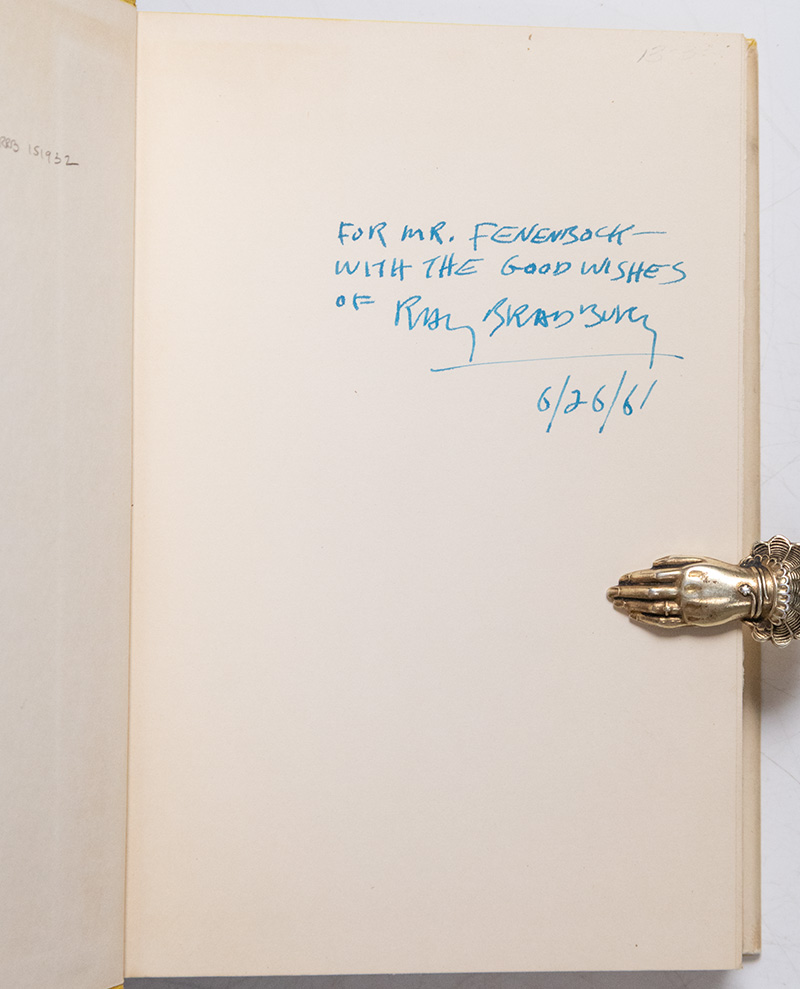 151932
FOR MR. FENENBOCK—
WITH THE GOOD WISHES
OF RAY BRADBURY
6/26/61